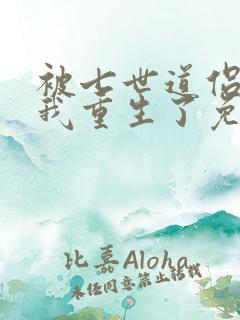 被七世道侣
我重生了免
比嘉Aloha
未任同意禁止转载